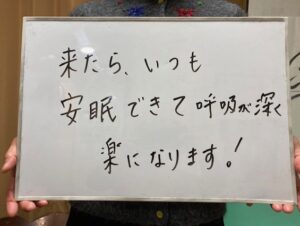 来たら、いつも
安眠できて呼吸が深く
楽になります!